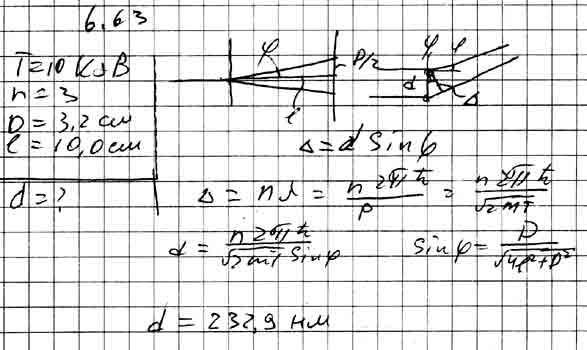 6.63
T=10 КэВ
n = 3
D = 3,2 см
l = 10,0 см
d = ?
φ
l
D/2
φ φ
d
Δ
Δ = d sin φ
Δ = nλ = n 2π ħ / p = n 2π ħ / √2mT
d = n 2π ħ / √2mT sin φ
sin φ = D / √4l²+D²
d = 232,9 нм